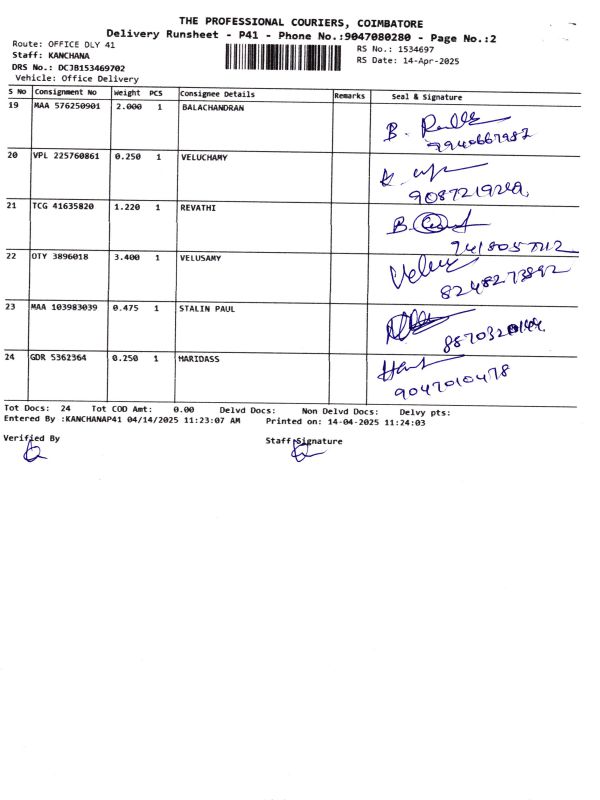 THE PROFESSIONAL COURIERS, COIMBATORE
Delivery Runsheet - P41 - Phone No.:9047080280 - Page No.:2
Route: OFFICE DLY 41
RS No.: 1534697
Staff: KANCHANA
RS Date: 14-Apr-2025
DRS No.: DCJB153469702
Vehicle: Office Delivery
S No Consignment No Weight PCS Consignee Details Remarks Seal & Signature
19 MAA 576250901 2.000 1 BALACHANDRAN
B.
9940667982
20 VPL 225760861 0.250 1 VELUCHAMY
21 TCG 41635820 1.220 1 REVATHI
B.
22 OTY 3896018 3.400 1 VELUSAMY
8248273892
23 MAA 103983039 0.475 1 STALIN PAUL
24 GDR 5362364 0.250 1 HARIDASS
9047010478
Tot Docs: 24 Tot COD Amt: 0.00 Delvd Docs: Non Delvd Docs: Delvy pts:
Entered By :KANCHANAP41 04/14/2025 11:23:07 AM Printed on: 14-04-2025 11:24:03
Verified By Staff Signature